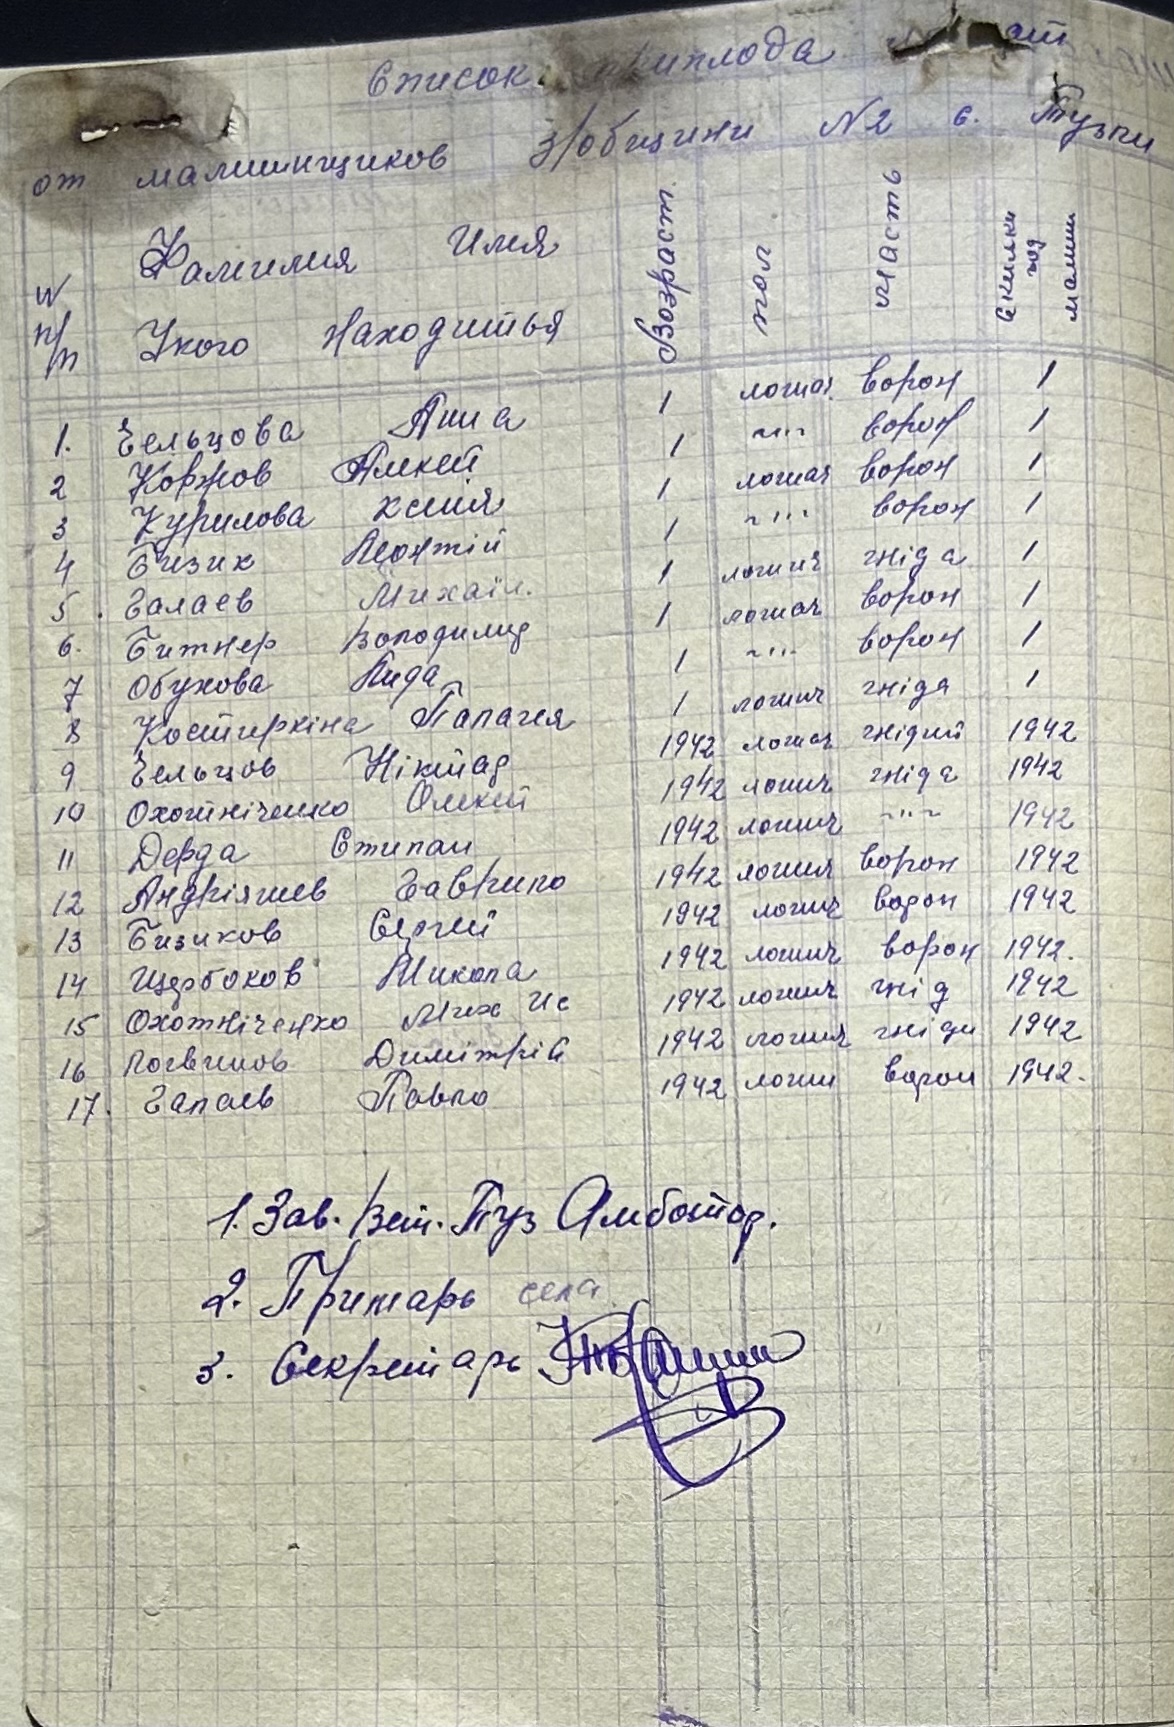 Список приплода
от малишнщиков з/общини N2 с. Тузли
N п/п Фамилия Имя Укого Находитья Возраст. пол Масть Скильки год малиш
1. Гельцова Анна 1 лошач. ворон 1
2 Коржов Алкей 1 -"- ворон 1
3 Курилова Ксенія 1 лошач ворон 1
4 Бизик Леонтій 1 -"- ворон 1
5. Галаев Михаїл. 1 лошич гніда 1
6. Битнер Володимир 1 лошач ворон 1
7 Обухова Лида 1 -"- ворон 1
8 Костиркіна Палагея 1 лошич гніда 1
9 Гельцов Нікіпад 1942 лошач гнідий 1942
10 Охотніченко Олекей 1942 лошич гніда 1942
11 Дерда Степан 1942 лошич -"- 1942
12 Андріяшев Гаврило 1942 лошич ворон 1942
13 Бизиков Сергей 1942 лошич ворон 1942
14 Щербоков Микола 1942 лошич ворон 1942.
15 Охотніченко Мих Ис 1942 лошич гнід 1942
16 Логвинов Димітрій 1942 лошич гніди 1942
17. Галаев Павло 1942 лоши ворон 1942.
1. Зав. Вет. Туз Амботор.
2. Примарь села
3. Секретарь